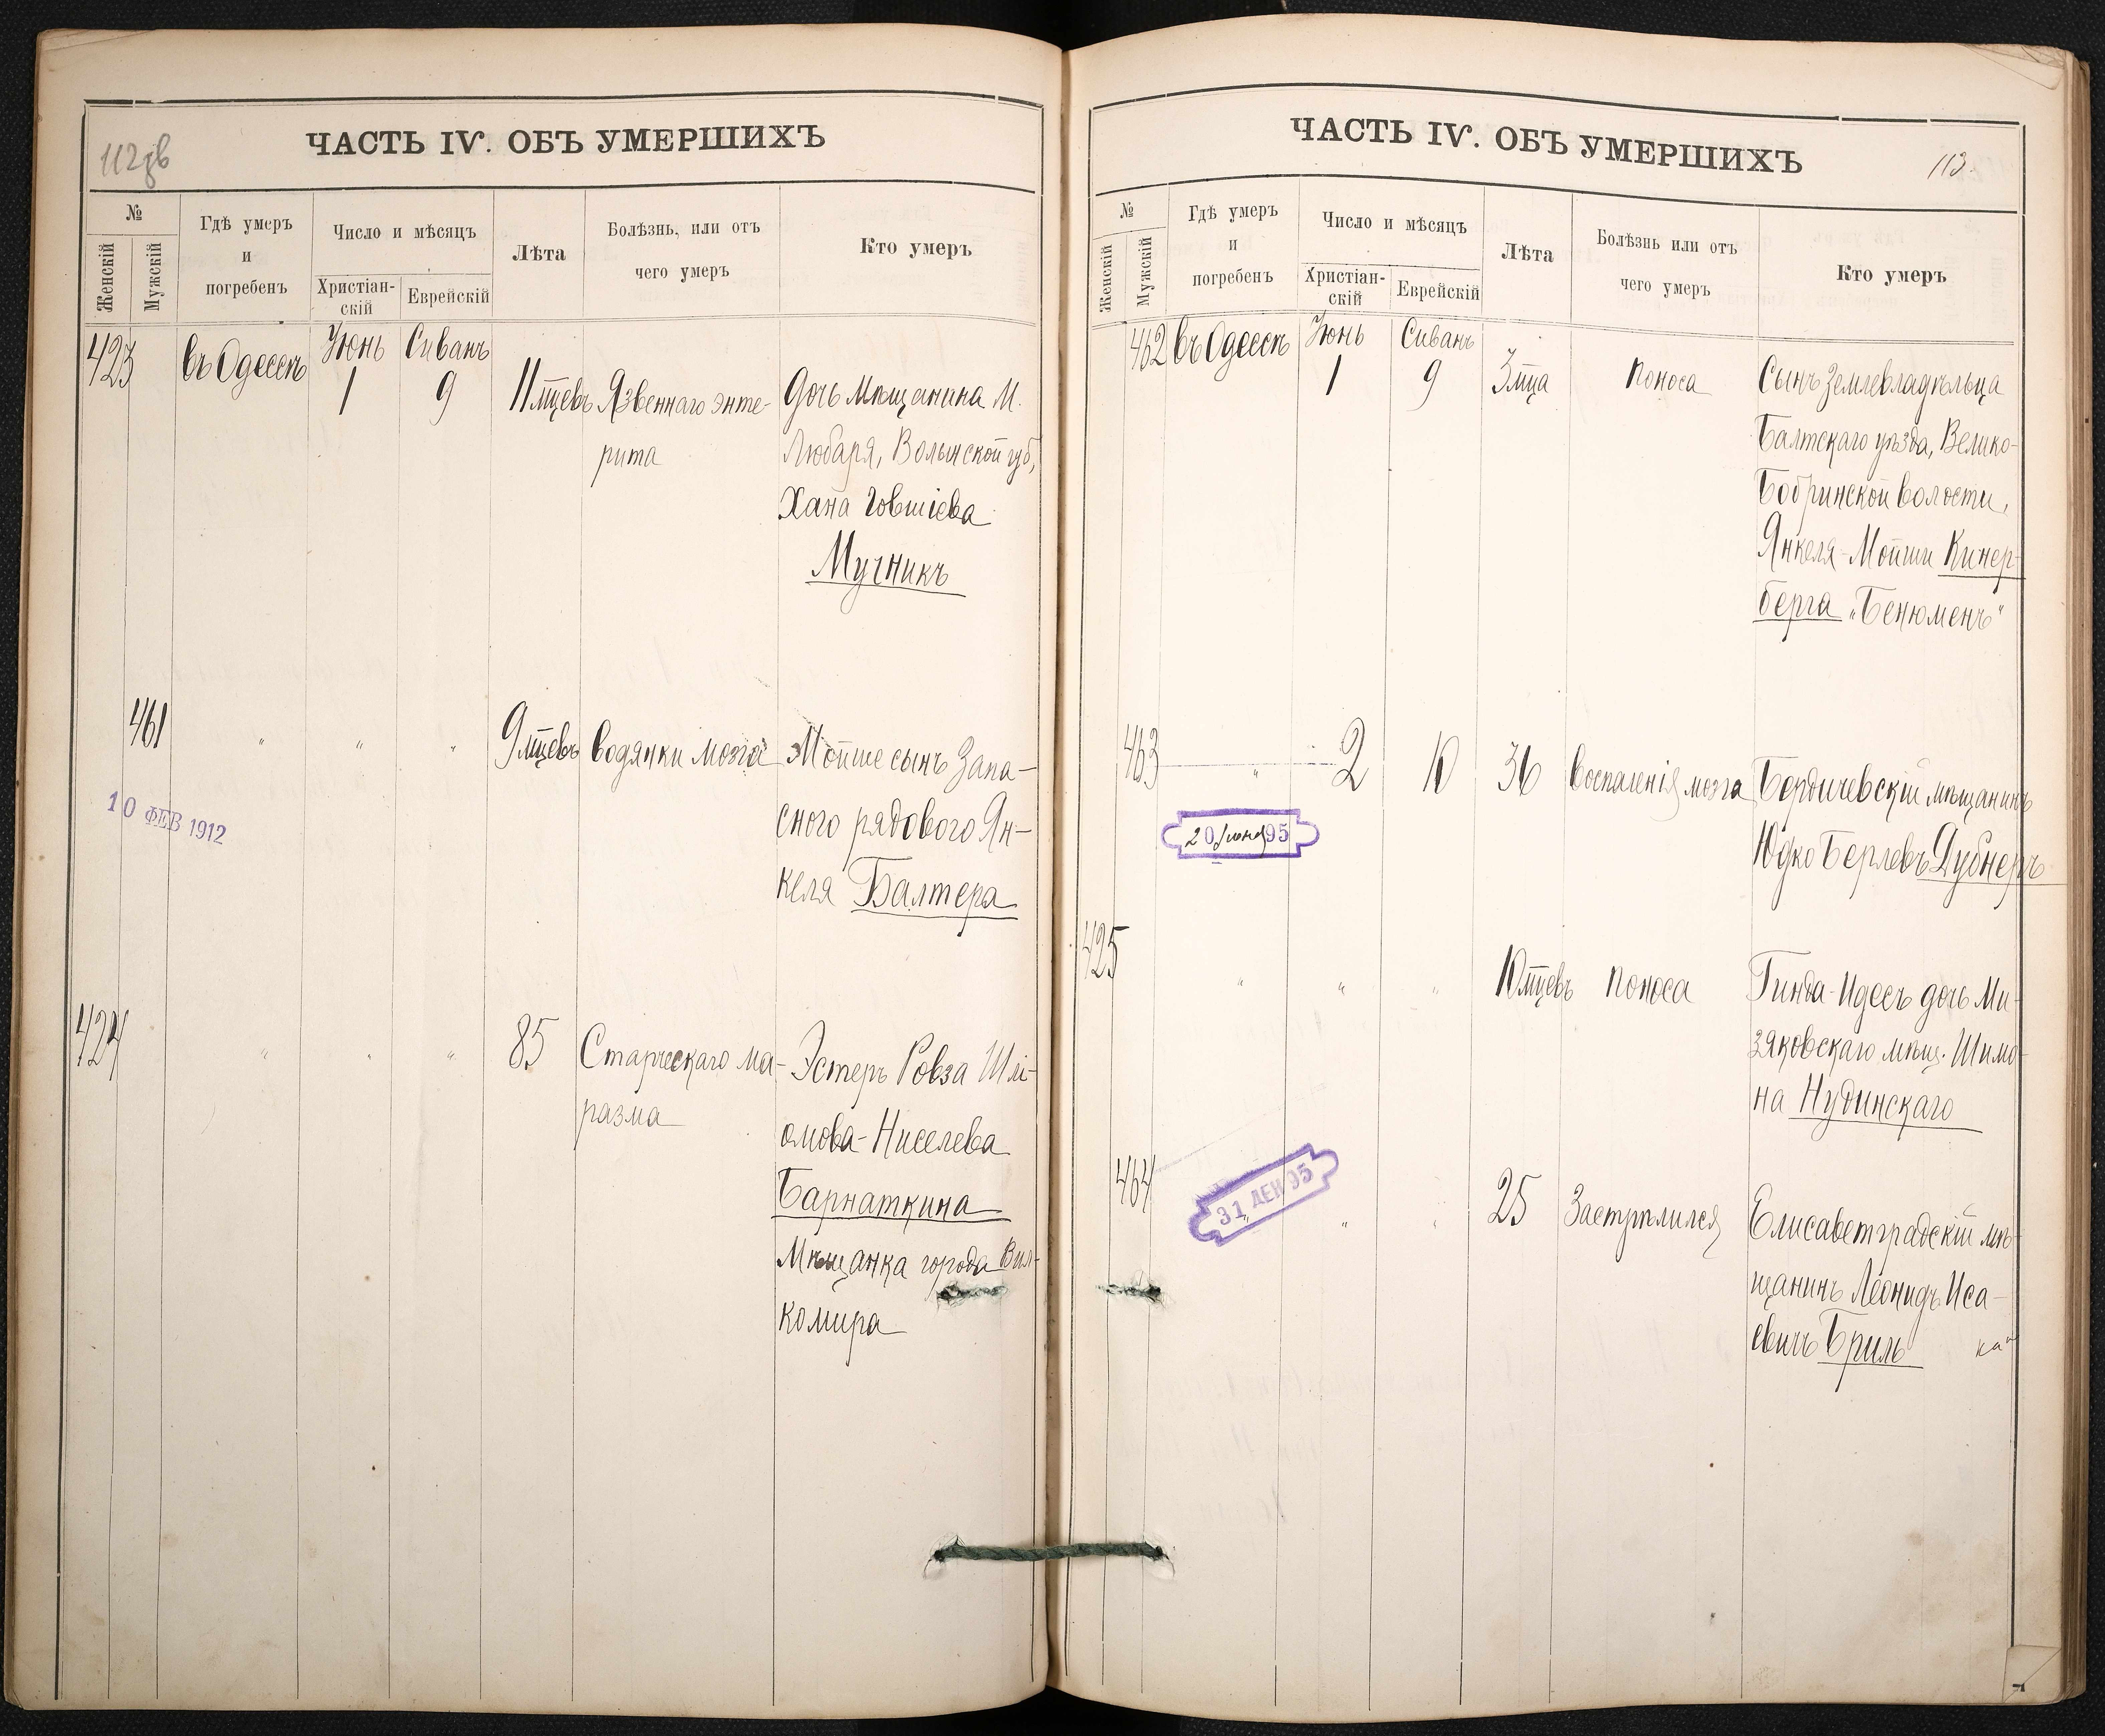 112 об
ЧАСТЬ IV. ОБЪ УМЕРШИХЪ
№
Женскій
Мужскій
Гдѣ умеръ
и
погребенъ
Число и мѣсяцъ
Христіан-
скій
Еврейскій
Лѣта
Болѣзнь, или отъ
чего умеръ
Кто умеръ
423 въ Одессѣ Іюнь Сиванъ
1 9 11 мцевъ Язвеннаго энте- Дочь мѣщанина м.
рита Любаря, Волынской губ,
Хана Іовшіева
Мучникъ
461 " " " 9 мцевъ водянки мозга Мойше сынъ Запа-
10 ФЕВ 1912
снаго рядового Ян-
келя Балтера
424 " " " 85 Старческаго ма- Эстеръ Ровза Шлі-
разма омова-Ниселева
Барнаткина
Мѣщанка города Вил-
комира
ЧАСТЬ IV. ОБЪ УМЕРШИХЪ
113.
№
Женскій
Мужскій
Гдѣ умеръ
и
погребенъ
Число и мѣсяцъ
Христіан-
скій
Еврейскій
Лѣта
Болѣзнь или отъ
чего умеръ
Кто умеръ
462 въ Одессѣ Іюнь Сиванъ
1 9 3 мца поноса Сынъ Землевладѣльца
Балтскаго уѣзда, Велико-
Бобринской волости,
Янкеля-Мойши Кинер-
берга "Бенюменъ"
463 " 2 10 36 воспаленія мозга Бердичевскій мѣщанинъ
20 Іюня 95
Юдко Берлевъ Дубнеръ
425 " " " 10 мцевъ поноса Гинда-Идесъ дочь Ми-
зяковскаго мѣщ. Шимо-
на Нудинскаго
464 " " " 25 Застрѣлился Елисаветградскій мѣ-
31 ДЕК 95
щанинъ Леонидъ Иса-
евичъ Бриль